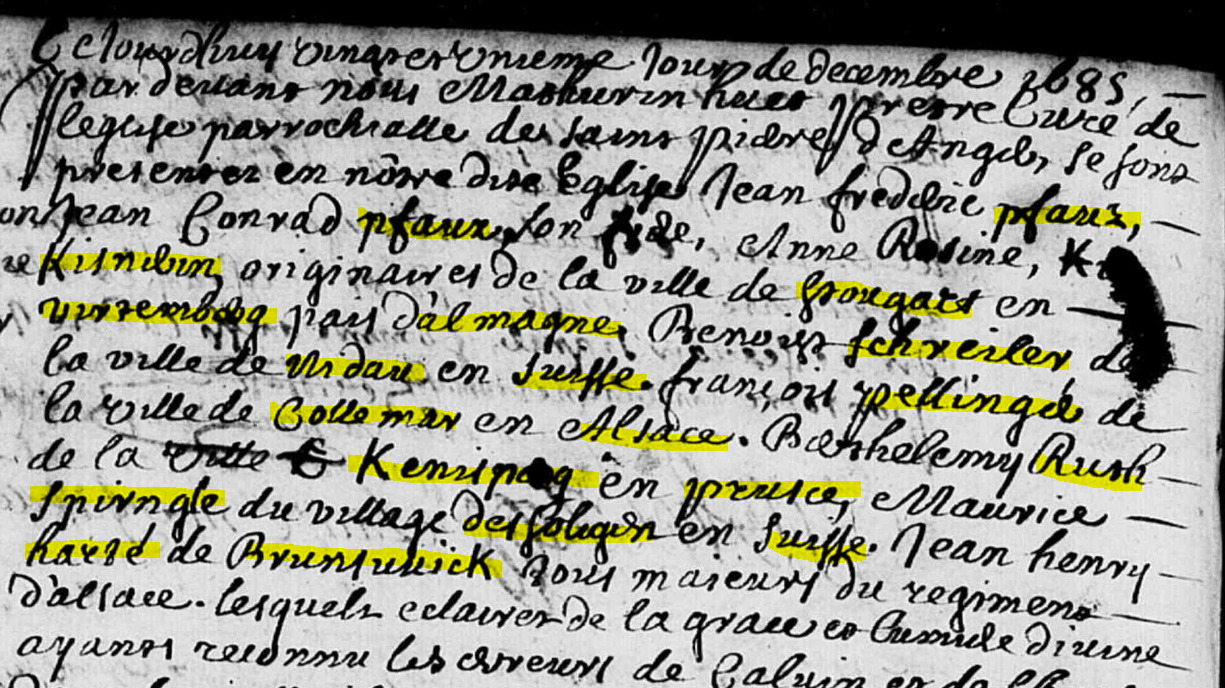 Ce Jourdhuy vingt et vnieme Jour de decembre 1685, —
par devant nous Mathurin huet prestre Curé de
leglise parrochialle de saint pierre d'Angels, se sont
presentez en nôtre dite Eglise Jean frederic pfaux, —
Jean Conrad pfaux, son Anne Rosine,
Kisnelin originaires de la ville de Stougart en —
virtemberg pais d'almagne, Benoist schreiler de
la ville de Nidau en suisse. françois pellingel de
la ville de Collemar en Alsace. Barthelemy Rush —
de la ville Kenisperg en prusce, Maurice —
spirngle du village en suisse. Jean henry —
harté de Brunsuuick tous majeurs du regiment —
d'alsace. lesquels eclairez de la grace et lumiere divine
ayants reconnu les erreurs de Calvin et de